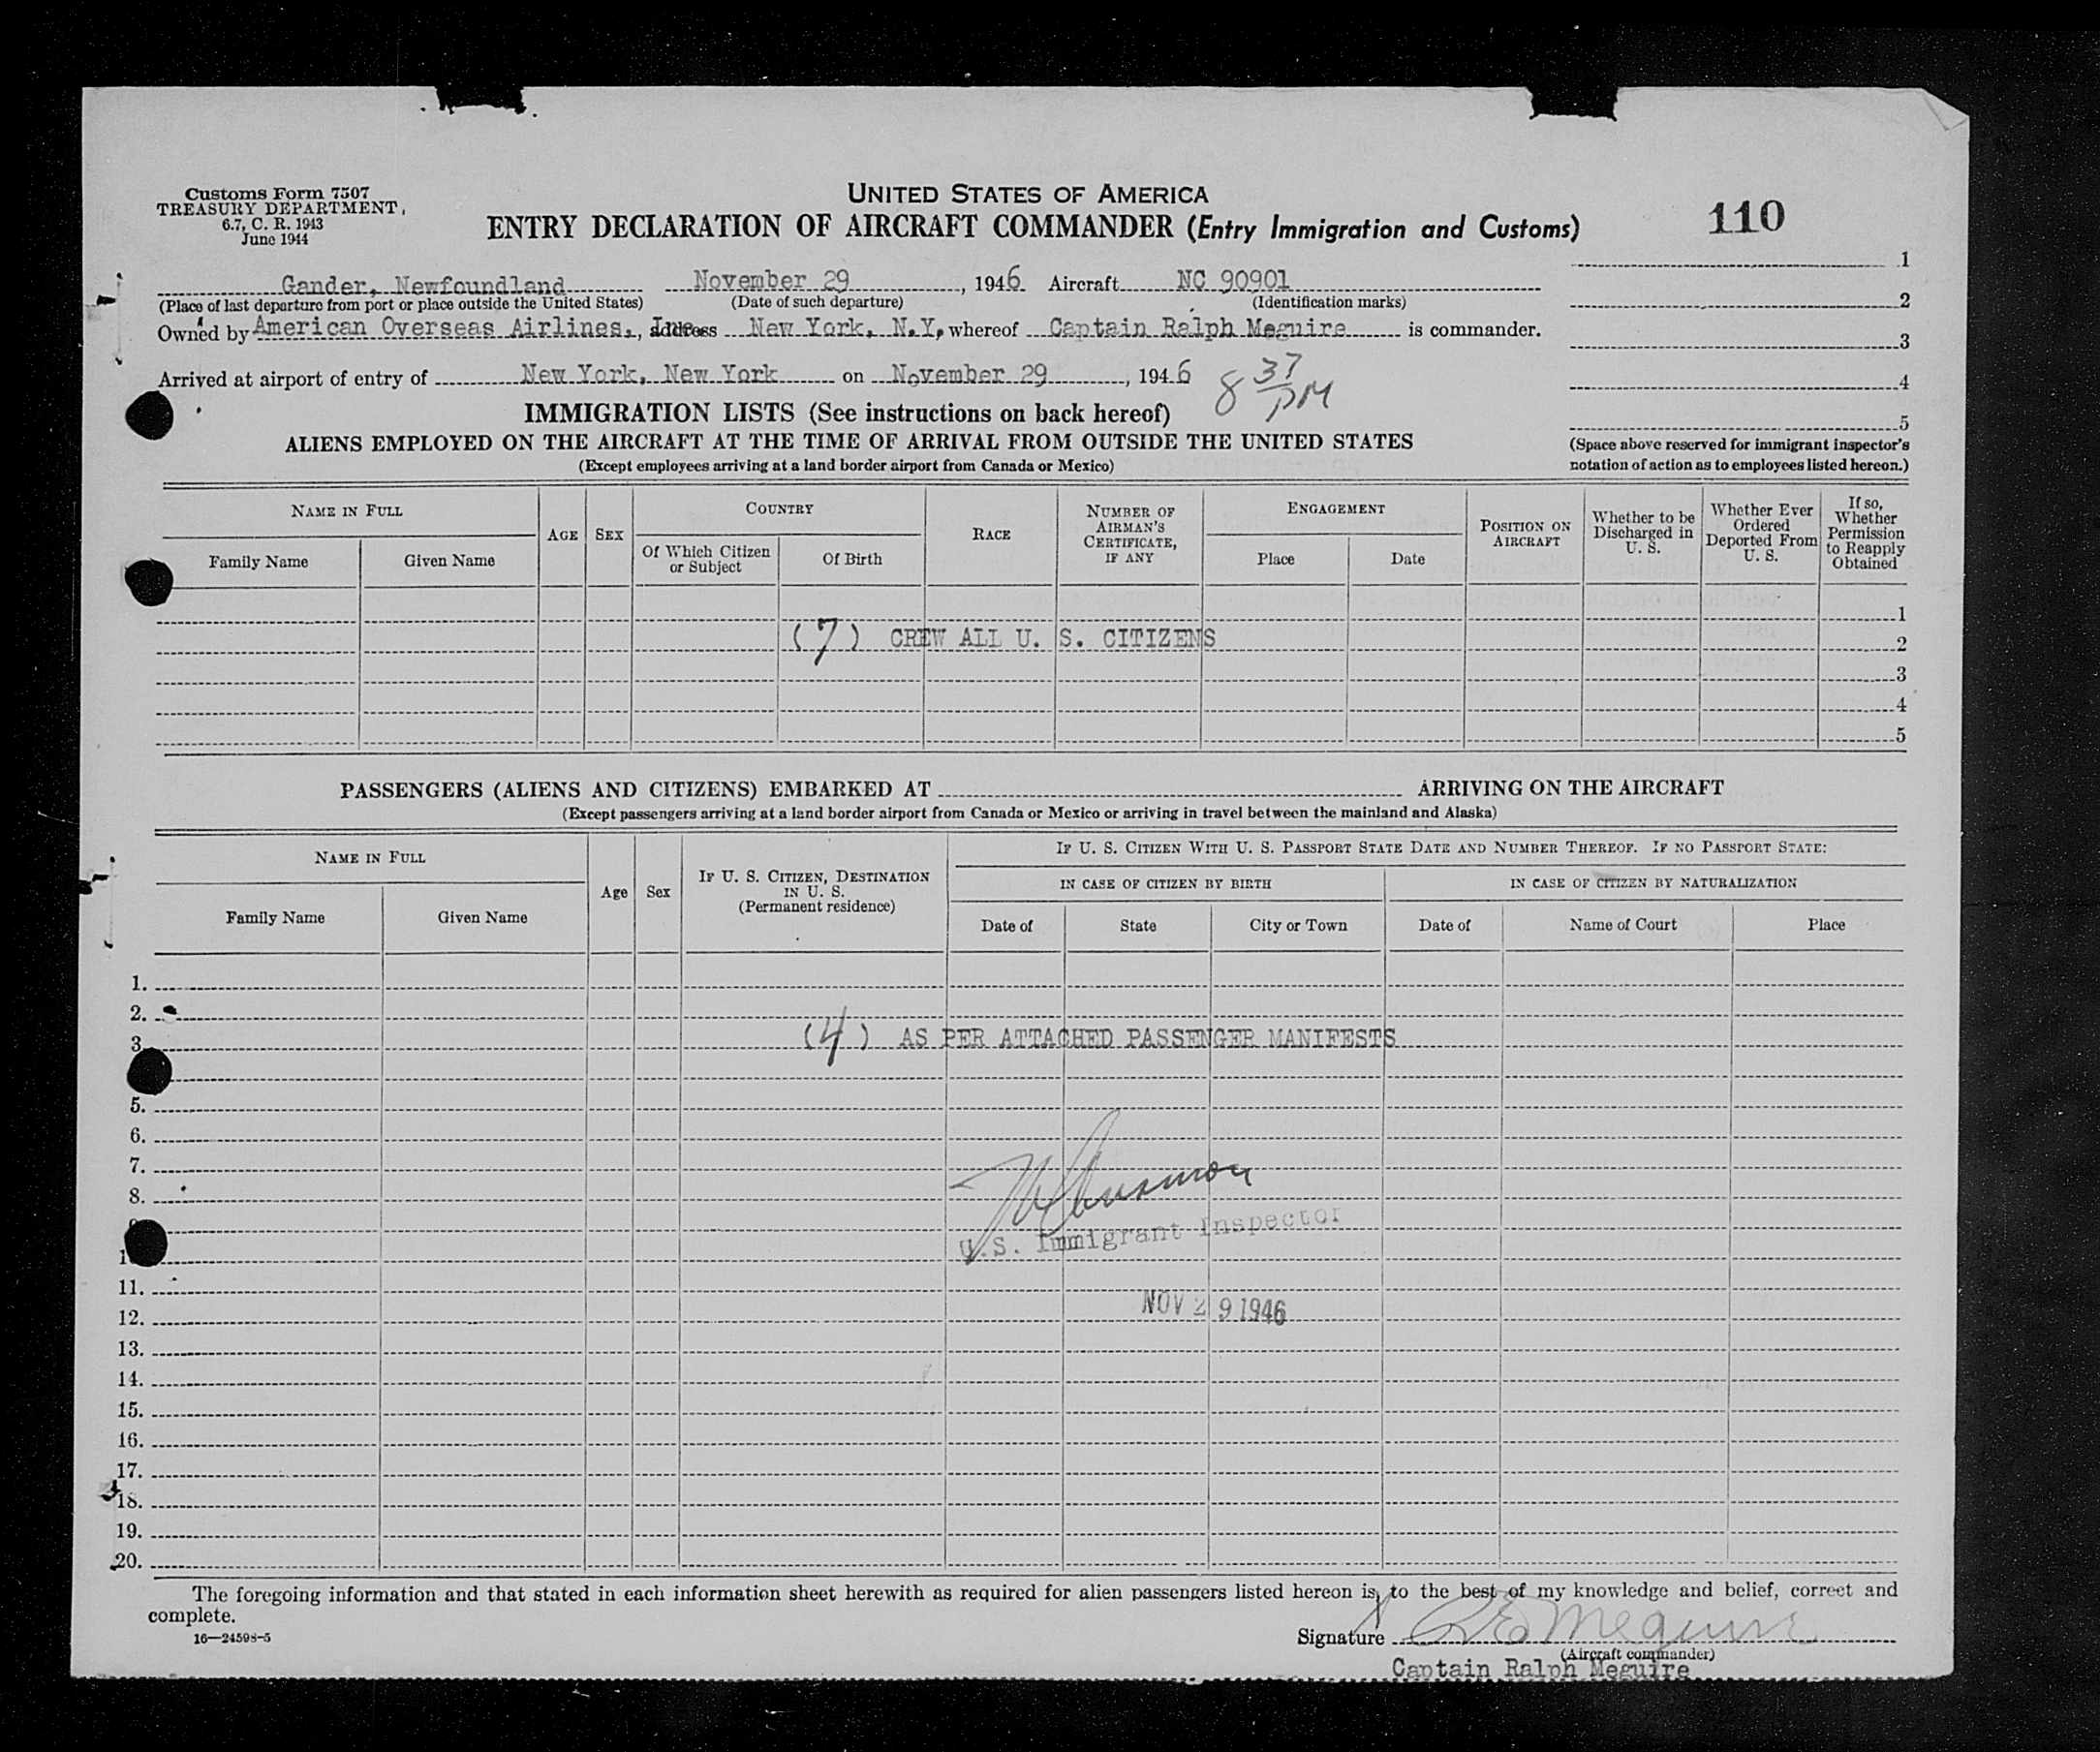 Customs Form 7507
TREASURY DEPARTMENT,
6.7, C. R. 1943
June 1944
UNITED STATES OF AMERICA
ENTRY DECLARATION OF AIRCRAFT COMMANDER (Entry Immigration and Customs)
110
Gander, Newfoundland November 29, 1946 Aircraft NC 90901
(Place of last departure from port or place outside the United States) (Date of such departure) (Identification marks)
Owned by American Overseas Airlines, Inc., address New York, N.Y. whereof Captain Ralph Meguire is commander.
Arrived at airport of entry of New York, New York on November 29, 1946 8 37 PM
1
2
3
4
5
(Space above reserved for immigrant inspector's
notation of action as to employees listed hereon.)
IMMIGRATION LISTS (See instructions on back hereof)
ALIENS EMPLOYED ON THE AIRCRAFT AT THE TIME OF ARRIVAL FROM OUTSIDE THE UNITED STATES
(Except employees arriving at a land border airport from Canada or Mexico)
NAME IN FULL
Family Name Given Name
AGE
SEX
COUNTRY
Of Which Citizen
or Subject
Of Birth
RACE
NUMBER OF
AIRMAN'S
CERTIFICATE,
IF ANY
ENGAGEMENT
Place Date
POSITION ON
AIRCRAFT
Whether to be
Discharged in
U. S.
Whether Ever
Ordered
Deported From
U. S.
If so,
Whether
Permission
to Reapply
Obtained
1
(7) CREW ALL U. S. CITIZENS 2
3
4
5
PASSENGERS (ALIENS AND CITIZENS) EMBARKED AT ARRIVING ON THE AIRCRAFT
(Except passengers arriving at a land border airport from Canada or Mexico or arriving in travel between the mainland and Alaska)
NAME IN FULL
Family Name Given Name
Age
Sex
IF U. S. CITIZEN, DESTINATION
IN U. S.
(Permanent residence)
IF U. S. CITIZEN WITH U. S. PASSPORT STATE DATE AND NUMBER THEREOF. IF NO PASSPORT STATE:
IN CASE OF CITIZEN BY BIRTH IN CASE OF CITIZEN BY NATURALIZATION
Date of State City or Town Date of Name of Court Place
1.
2.
3. (4) AS PER ATTACHED PASSENGER MANIFESTS
5.
6.
7.
8.
U.S. Immigrant Inspector
11.
12. NOV 29 1946
13.
14.
15.
16.
17.
18.
19.
20.
The foregoing information and that stated in each information sheet herewith as required for alien passengers listed hereon is, to the best of my knowledge and belief, correct and
complete.
16—24598-5
Signature X R E Meguire
(Aircraft commander)
Captain Ralph Meguire